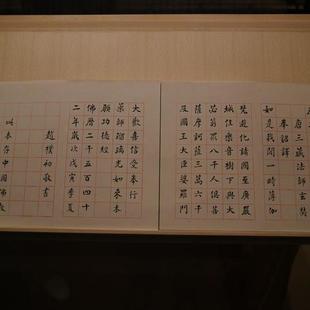 唐三藏法師玄奘
奉詔譯
如是我聞一時薄伽
梵遊化諸國至廣嚴
城住樂音樹下與大
苾芻眾八千人俱菩
薩摩訶薩三萬六千
及國王大臣婆羅門
大歡喜信受奉行
藥師瑠璃光如來本
願功德經
佛曆二千五百四十
二年歲次戊寅季夏
趙樸初敬書
存中國佛教